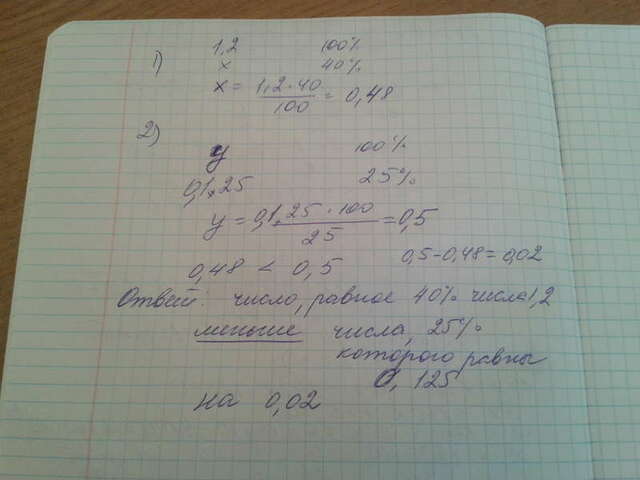 1) 1,2 100%
x 40%
x = 1,2·40/100 = 0,48
2) y 100%
0,125 25%
y = 0,125·100/25 = 0,5
0,48 < 0,5 0,5-0,48=0,02
Ответ: число, равное 40% числа 1,2
меньше числа, 25%
которого равны
0,125
на 0,02